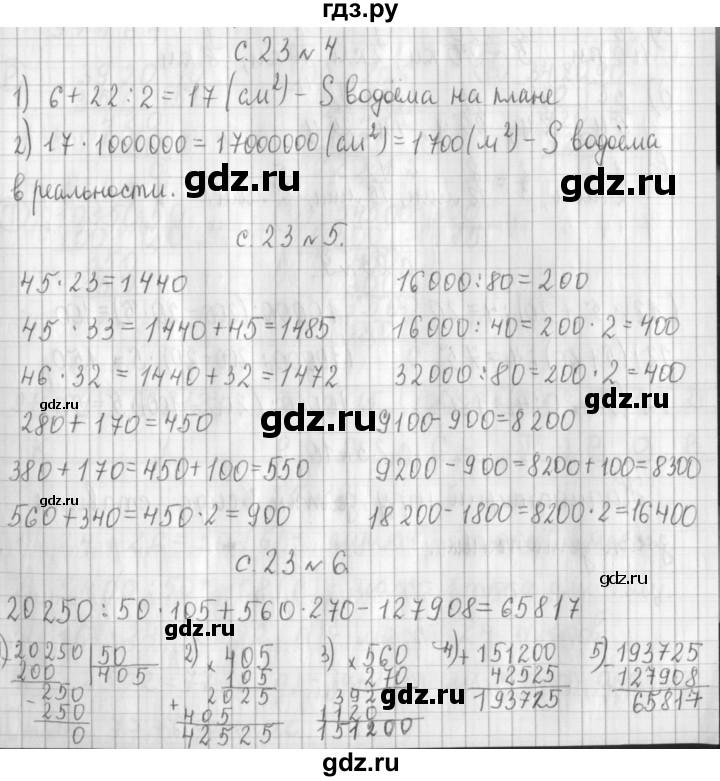 гдз.ру
с. 23 № 4.
1) 6 + 22 : 2 = 17 (см²) – S водоёма на плане
2) 17 · 1000000 = 17000000 (см²) = 1700 (м²) – S водоёма
в реальности.
gdz.ru
gdz.ru
с. 23 № 5.
45 · 23 = 1440
16000 : 80 = 200
45 · 33 = 1440 + 45 = 1485
16000 : 40 = 200 · 2 = 400
46 · 32 = 1440 + 32 = 1472
32000 : 80 = 200 · 2 = 400
gdz.ru
gdz.ru
gdz.ru
280 + 170 = 450
9100 – 900 = 8200
380 + 170 = 450 + 100 = 550
9200 – 900 = 8200 + 100 = 8300
gdz.ru
560 + 340 = 450 · 2 = 900
18200 – 1800 = 8200 · 2 = 16400
с. 23 № 6.
gdz.ru
20250 : 50 · 105 + 560 · 270 – 127908 = 65817
gdz.ru
1) – 20250 | 50
200 | 405
– 250
250
0
2) × 405
105
2025
+ 405
42525
3) × 560
270
392
1120
151200
4) + 151200
42525
193725
5) – 193725
127908
65817
gdz.ru
gdz.ru